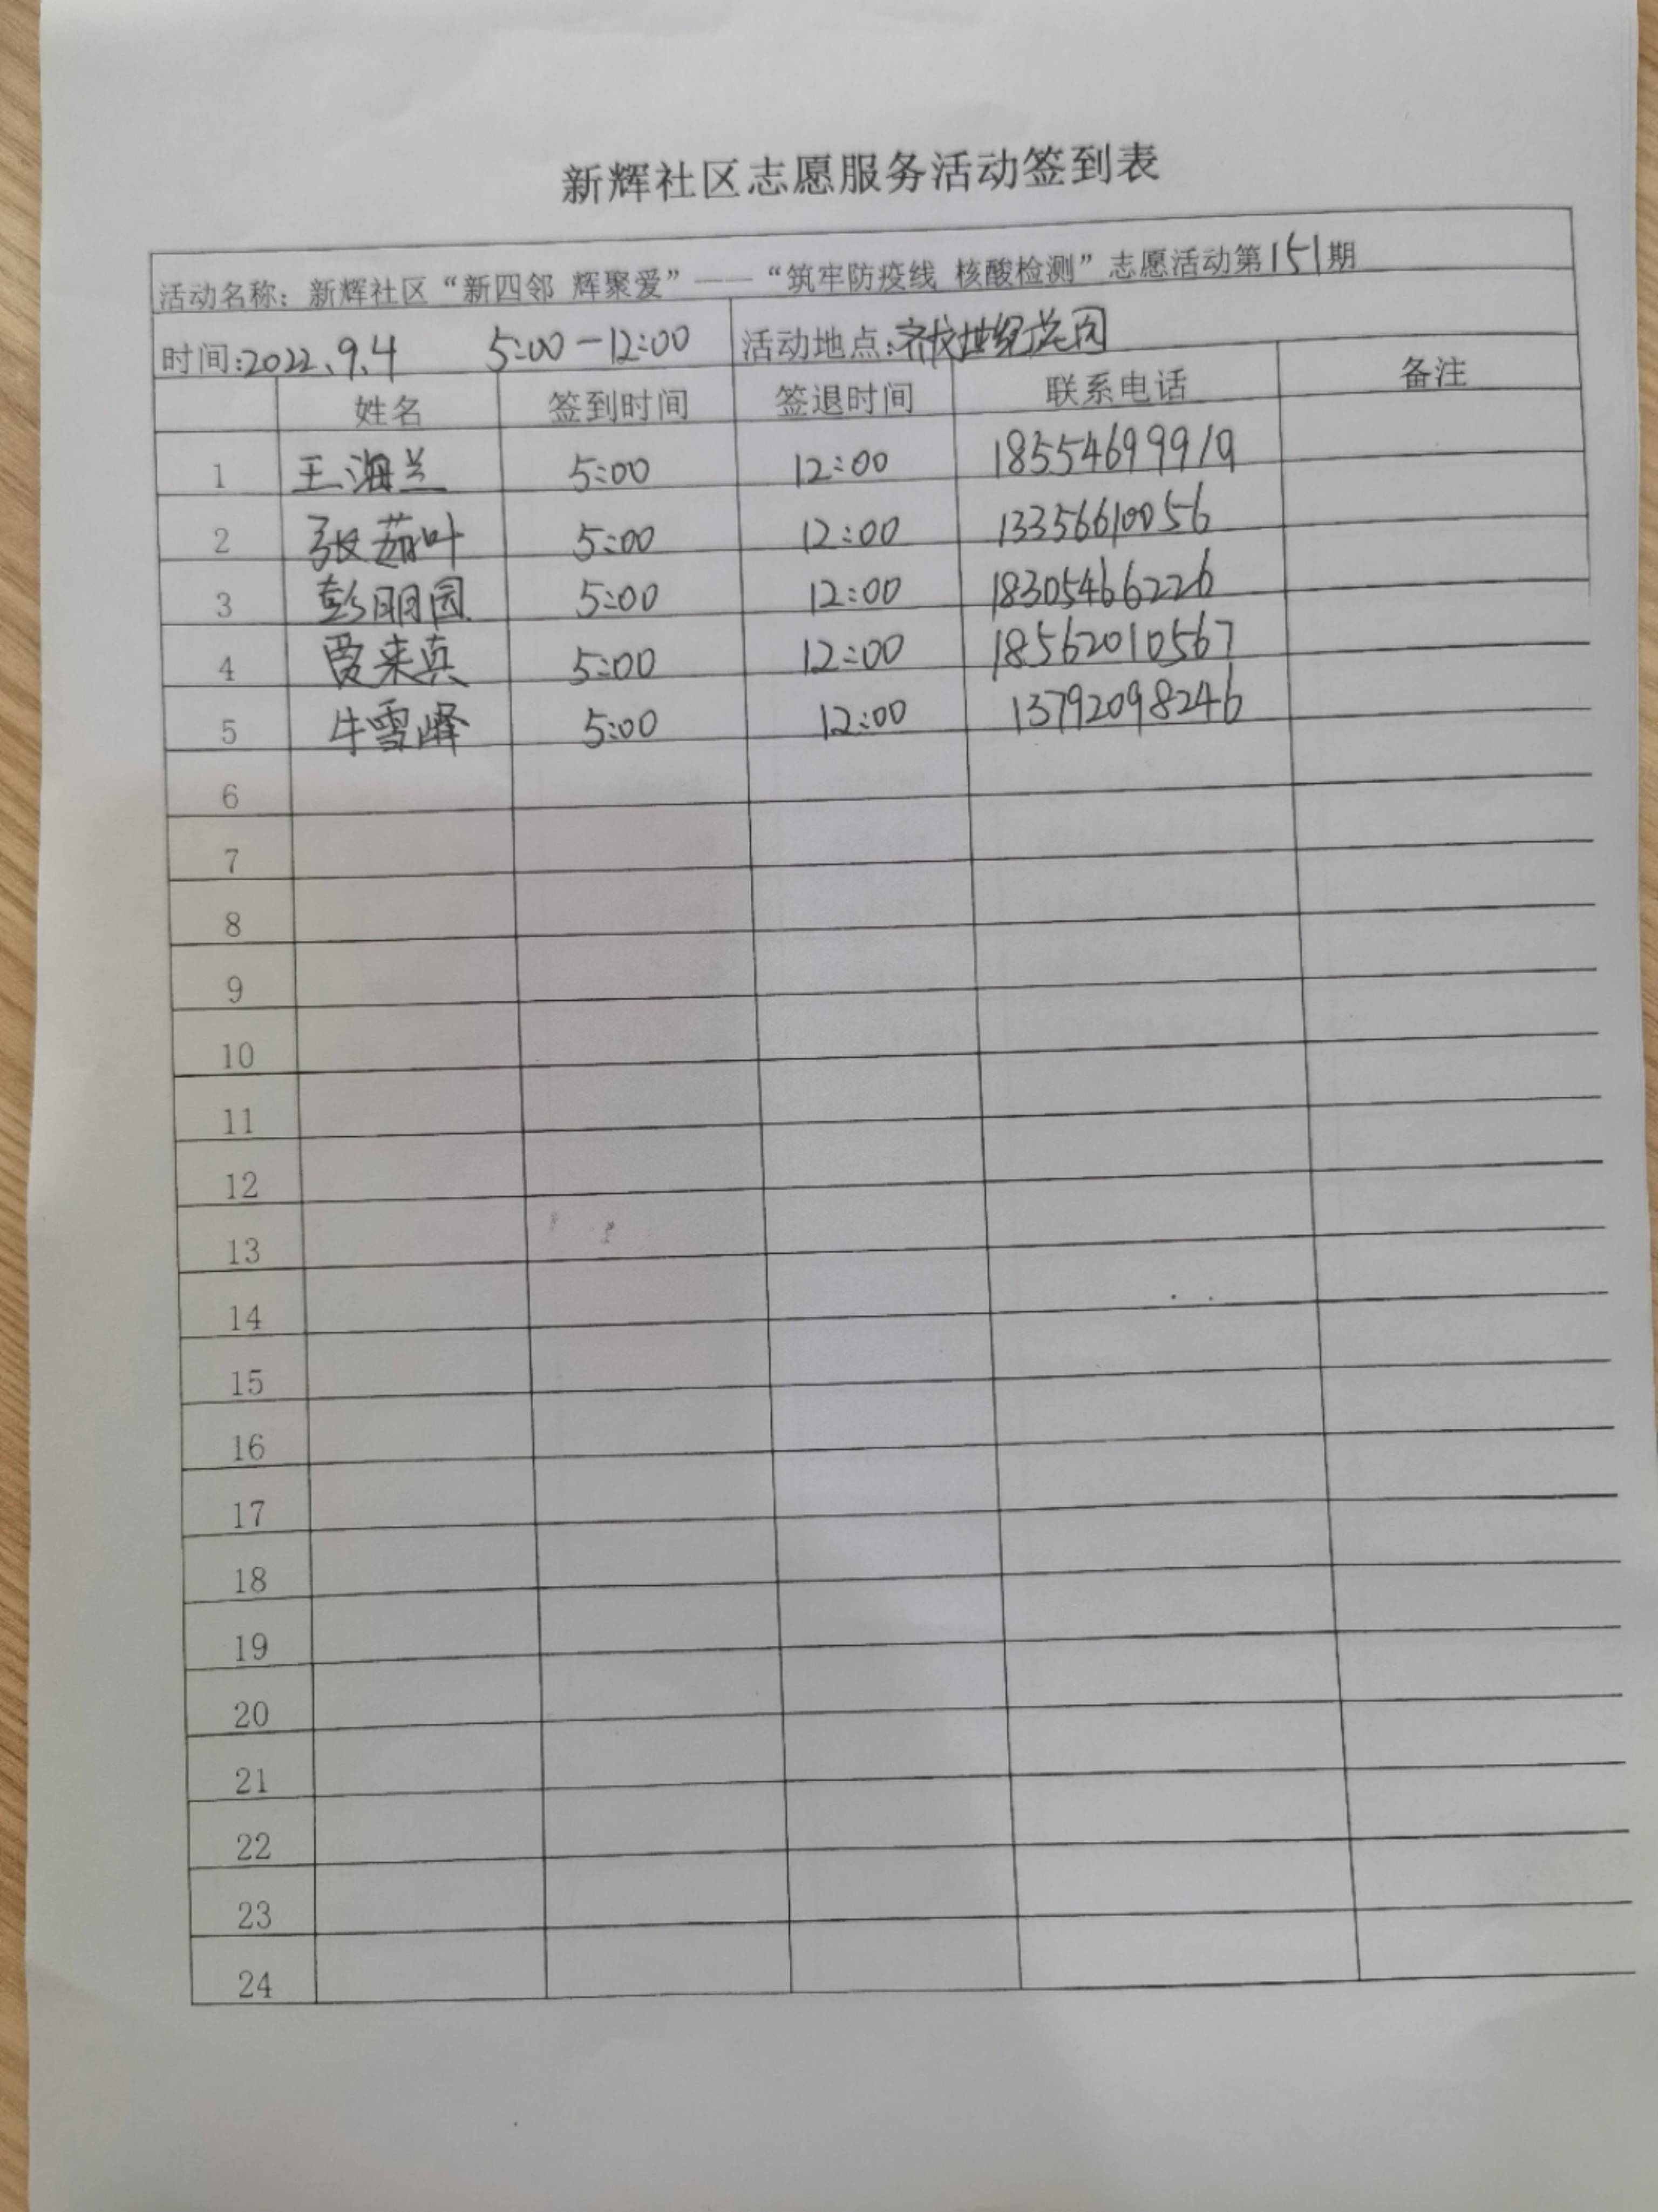 新辉社区志愿服务活动签到表
活动名称：新辉社区“新四邻 辉聚爱”——“筑牢防疫线 核酸检测”志愿活动第151期
时间:2022.9.4 5:00-12:00 活动地点:齐龙世纪花园
姓名 签到时间 签退时间 联系电话 备注
1 王海兰 5:00 12:00 18554699919
2 张茹叶 5:00 12:00 13356610056
3 彭丽园 5:00 12:00 18305466226
4 贾来真 5:00 12:00 18562010567
5 牛雪峰 5:00 12:00 13792098246
6
7
8
9
10
11
12
13
14
15
16
17
18
19
20
21
22
23
24